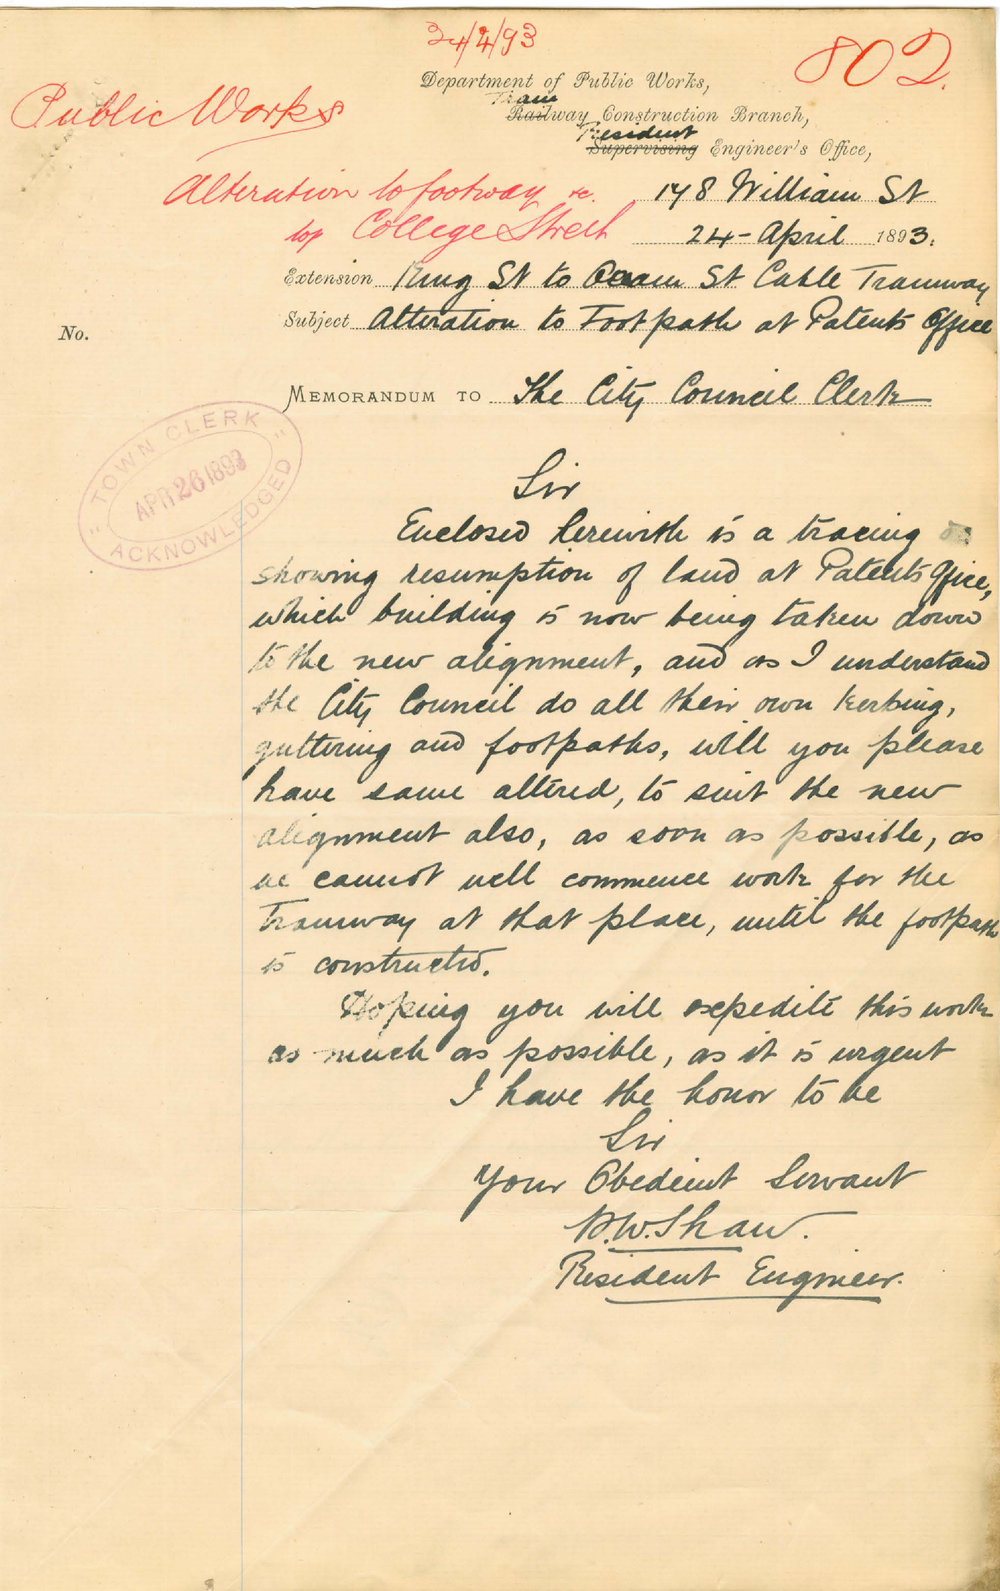 24/4/93
802.
Public Works
Department of Public Works,
Tram
Railway Construction Branch,
Resident
Supervising Engineer's Office,
Alteration to footway &c.
top College Street
178 William St
24 - April 1893.
Extension King St to Ocean St Cable Tramway
Subject Alteration to Footpath at Patents Office
No.
MEMORANDUM TO The City Council Clerk
"TOWN CLERK"
APR 26 1893
ACKNOWLEDGED
Sir
Enclosed herewith is a tracing
showing resumption of land at Patents Office,
which building is now being taken down
to the new alignment, and as I understand
the City Council do all their own kerbing,
guttering and footpaths, will you please
have same altered, to suit the new
alignment also, as soon as possible, as
we cannot well commence work for the
Tramway at that place, until the footpath
is constructed.
Hoping you will expedite this work
as much as possible, as it is urgent
I have the honor to be
Sir
Your Obedient Servant
W. Shaw.
Resident Engineer.